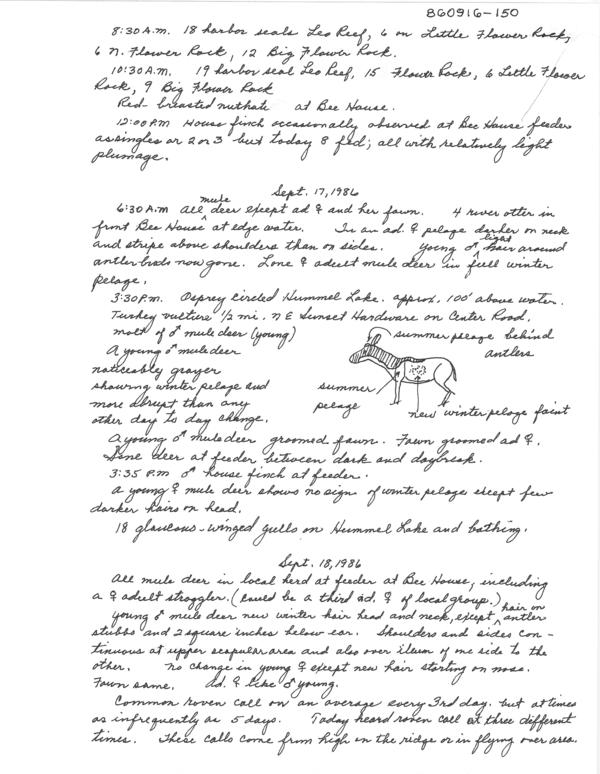 860916-150
8:30 A.M. 18 harbor seals Leo Reef, 6 on Little Flower Rock,
6 N. Flower Rock, 12 Big Flower Rock.
10:30 A.M. 19 harbor seal Leo Reef, 15 Flower Rock, 6 Little Flower
Rock, 9 Big Flower Rock
Red-breasted nuthatc at Bee House.
12:00 P.M House finch occasionally observed at Bee House feeder
as singles or 2 or 3 but today 8 fed; all with relatively light
plumage.
Sept. 17, 1986
6:30 A.M all mule deer except ad ♀ and her fawn. 4 river otter in
front Bee House at edge water. In an ad. ♀ pelage darker on neck
and stripe above shoulders than on sides. Young ♂ light hair around
antler buds now gone. Lone ♀ adult mule deer in full winter
pelage.
3:30 P.M. Osprey circled Hummel Lake. approx. 100' above water.
Turkey vulture 1/2 mi. N E Sunset Hardware on Center Road.
molt of ♂ mule deer (young)
A young ♂ mule deer
noticeably grayer
showing winter pelage and
more abrupt than any
other day to day change.
summer pelage behind
antlers
summer
pelage
new winter pelage faint
A young ♂ mule deer groomed fawn. Fawn groomed ad ♀.
Some deer at feeder between dark and daybreak.
3:35 P.M ♂ house finch at feeder.
A young ♀ mule deer shows no sign of winter pelage except few
darker hairs on head.
18 glaucous-winged gulls on Hummel Lake and bathing.
Sept. 18, 1986
All mule deer in local herd at feeder at Bee House, including
a ♀ adult straggler. (could be a third ad. ♀ of local group.)
Young ♂ mule deer new winter hair head and neck, except hair on antler
stubbs and 2 square inches below ear. Shoulders and sides con-
tinuous at upper scapular area and also over ilium of one side to the
other. No change in young ♀ except new hair starting on nose.
Fawn same. Ad. ♀ like ♂ young.
Common raven call on an average every 3rd day. but at times
as infrequently as 5 days. Today heard raven call at three different
times. These calls come from high on the ridge or in flying over area.